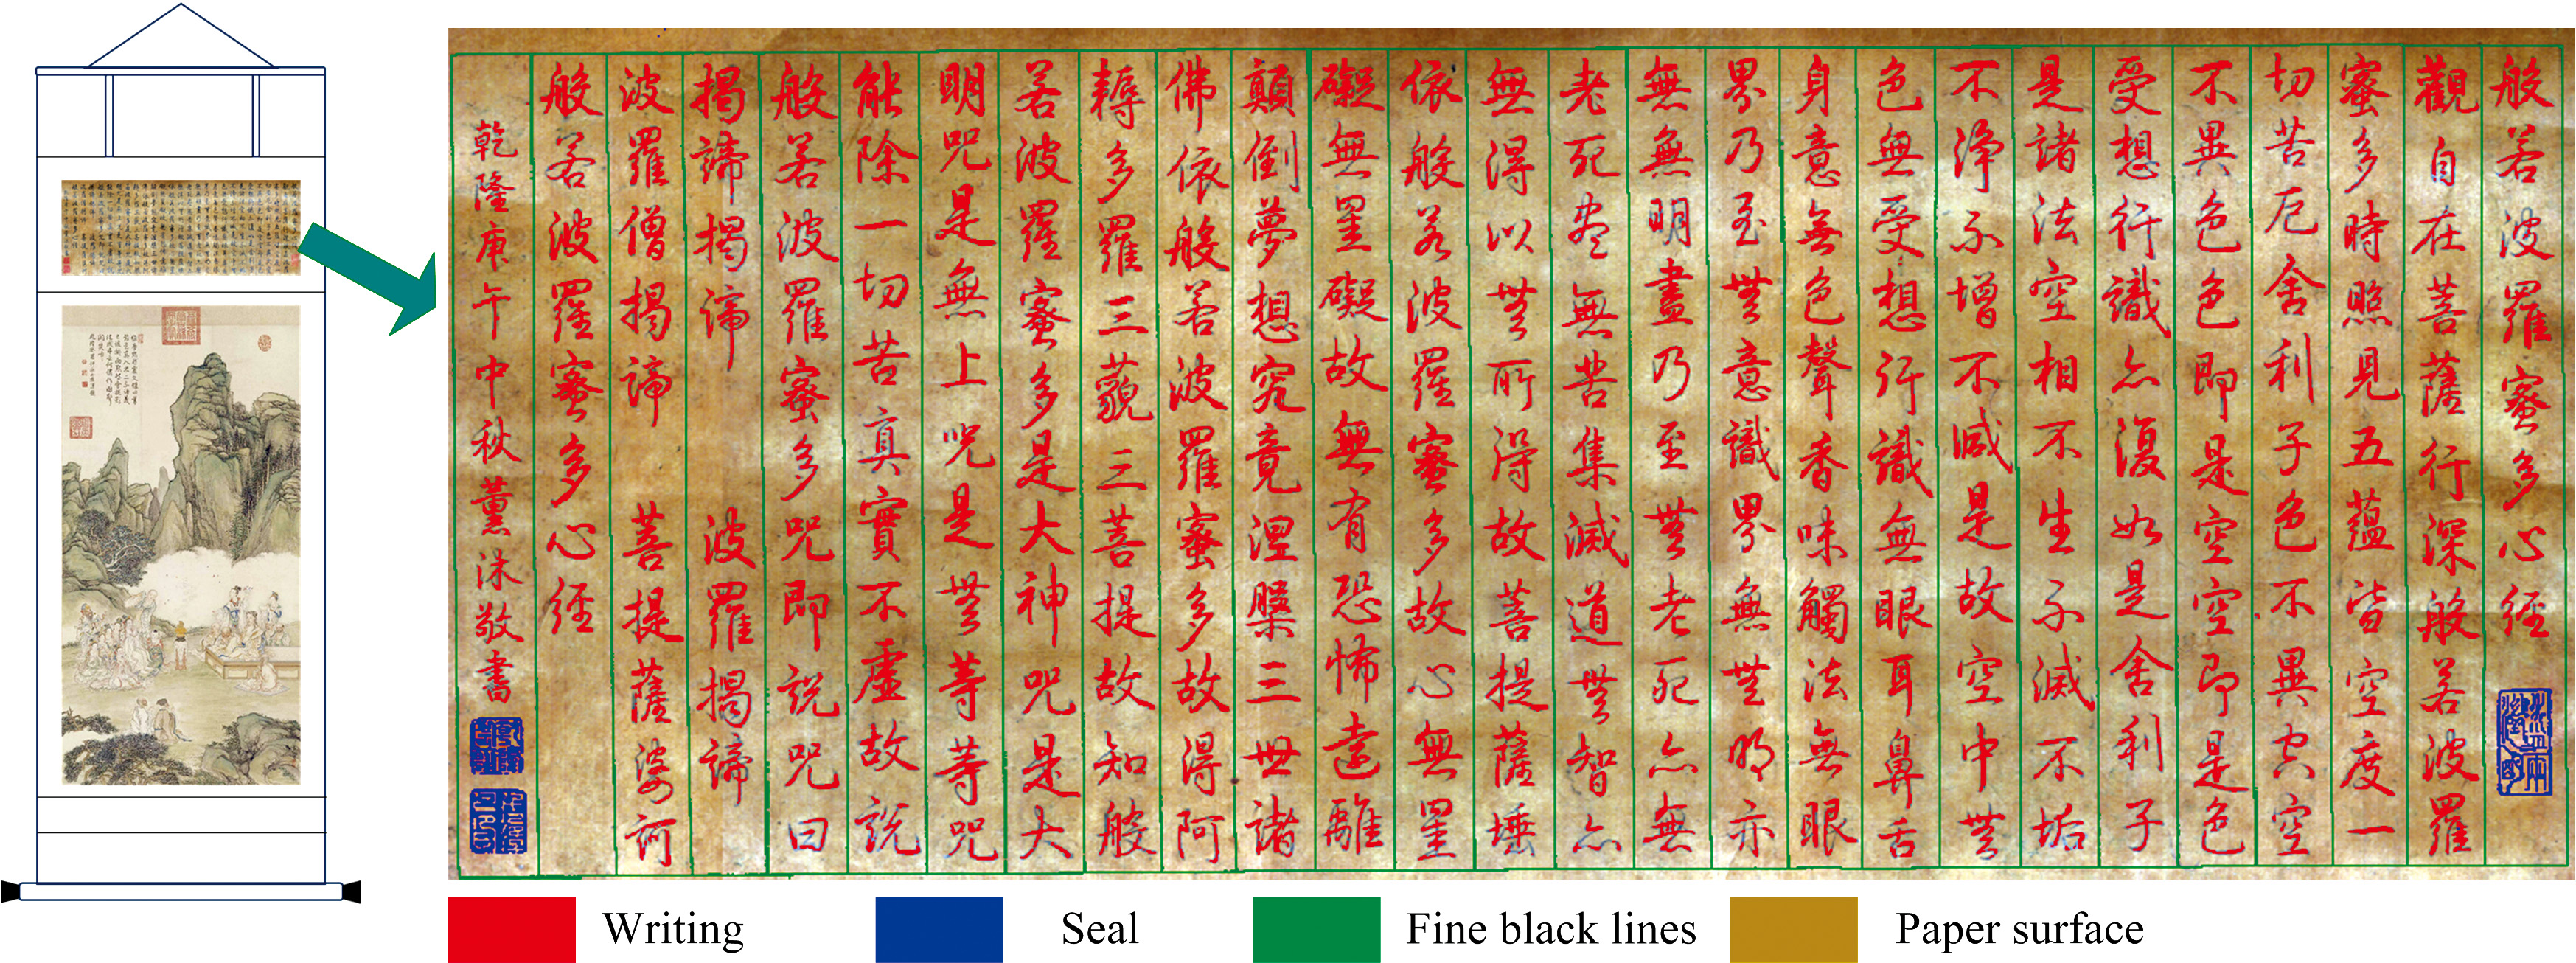 般若波羅蜜多心經
觀自在菩薩行深般若波羅
蜜多時照見五蘊皆空度一
切苦厄舍利子色不異空空
不異色色即是空空即是色
受想行識亦復如是舍利子
是諸法空相不生不滅不垢
不淨不增不減是故空中無
色無受想行識無眼耳鼻舌
身意無色聲香味觸法無眼
界乃至無意識界無無明亦
無無明盡乃至無老死亦無
老死盡無苦集滅道無智亦
無得以無所得故菩提薩埵
依般若波羅蜜多故心無罣
礙無罣礙故無有恐怖遠離
顛倒夢想究竟涅槃三世諸
佛依般若波羅蜜多故得阿
耨多羅三藐三菩提故知般
若波羅蜜多是大神咒是大
明咒是無上咒是無等等咒
能除一切苦真實不虛故說
般若波羅蜜多咒即說咒曰
揭諦揭諦 波羅揭諦
波羅僧揭諦 菩提薩婆訶
般若波羅蜜多心經
乾隆庚午中秋薰沐敬書
Writing
Seal
Fine black lines
Paper surface